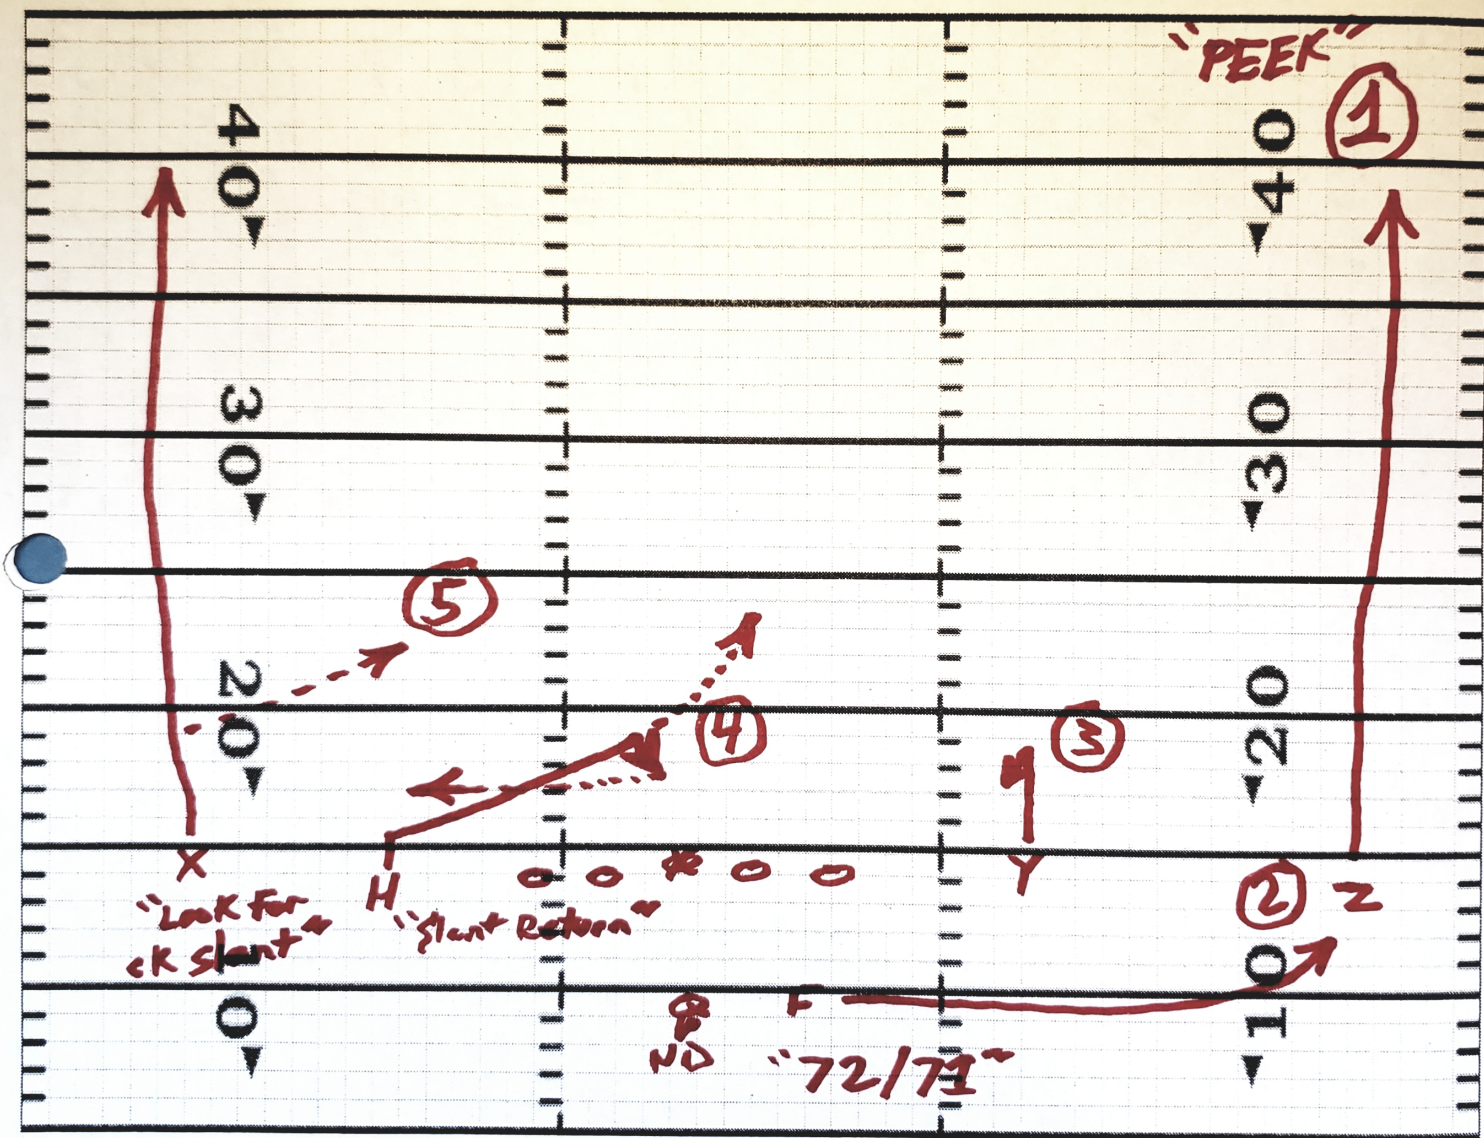 "PEEK"
1
4 0
4 0
3 0
3 0
5
2 0
2 0
4
3
X
H
Y
2
Z
"Look For
cK Slant"
"Slant Return"
1 0
1 0
F
ND
"72/71"